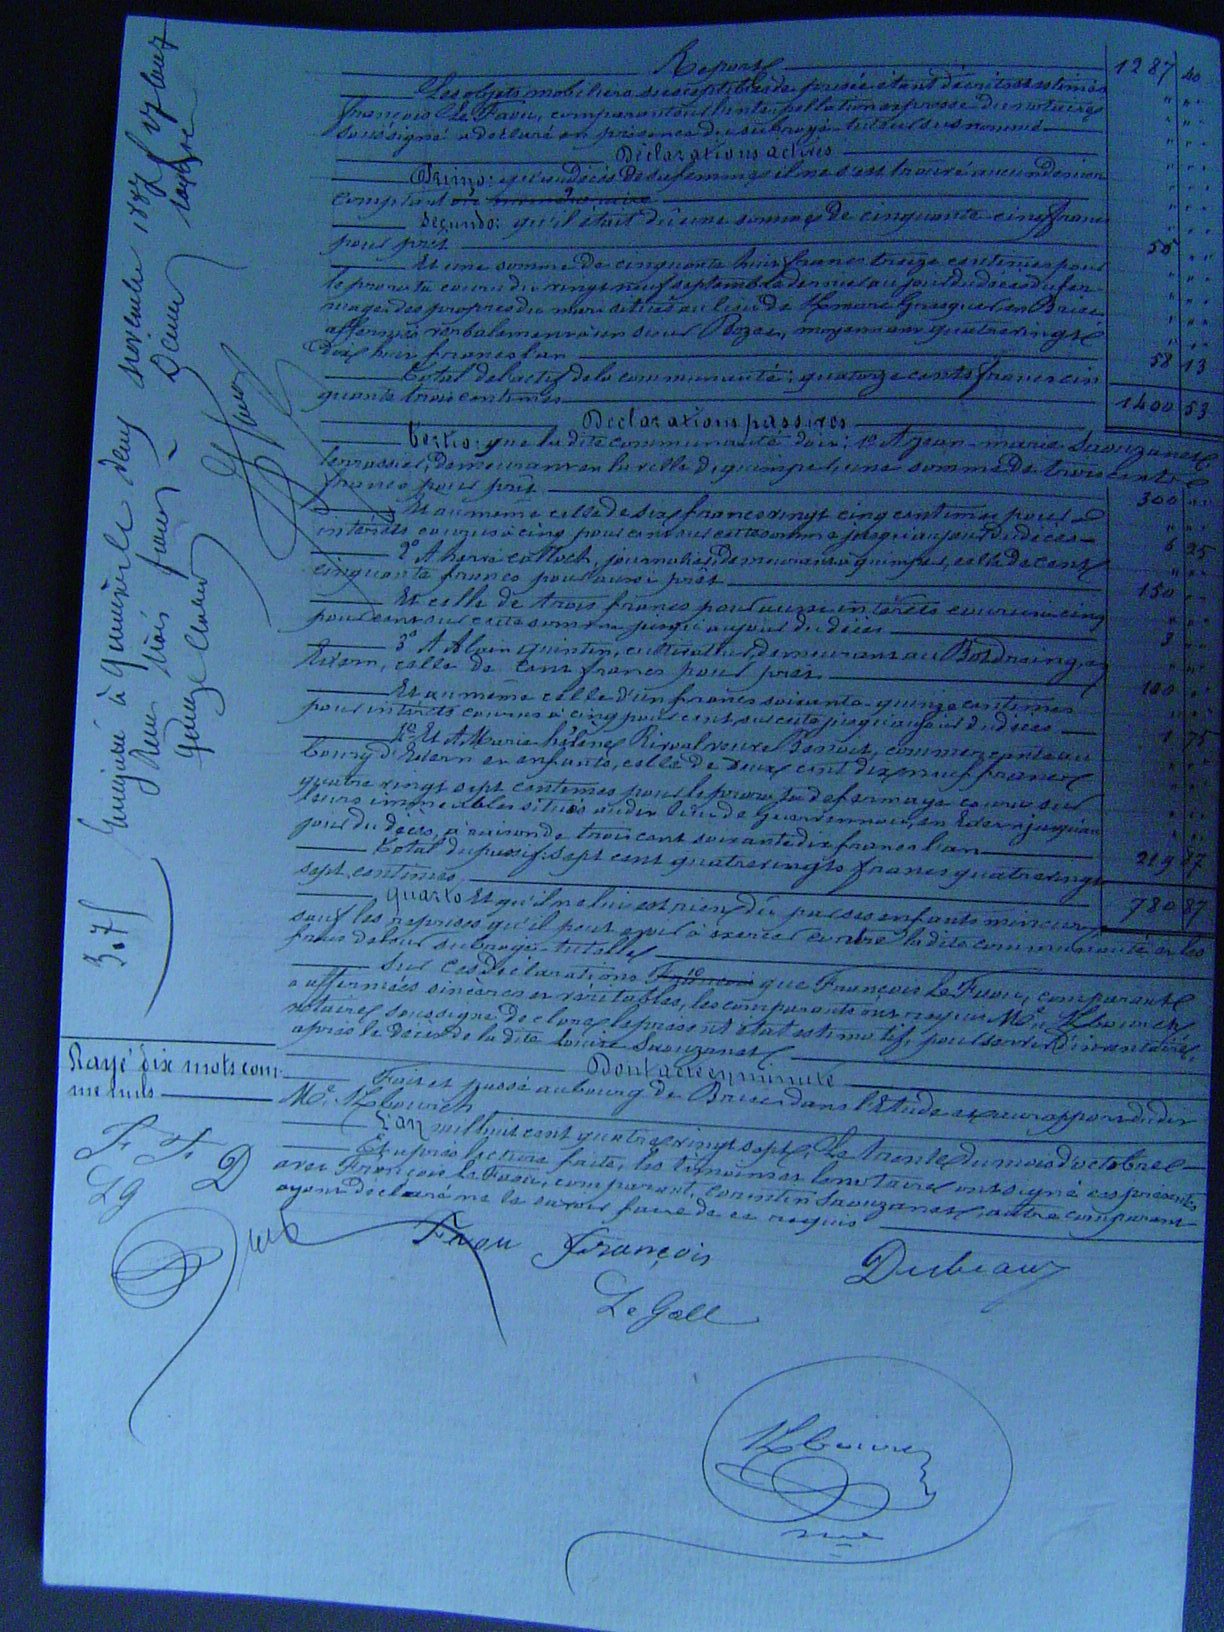 Report 1287 40
Les objets mobiliers susceptibles de prisée étant décrits et estimés
François Le Faou, comparant sur l'interpellation expresse du notaire
soussigné a déclaré en présence du subrogé-tuteur susnommé
Déclarations actives
Primo: qu'au décès de sa femme il ne s'est trouvé aucun denier
comptant
Secundo: qu'il était dû une somme de cinquante-cinq francs
pour prêt 55
Et une somme de cinquante huit francs treize centimes pour
le prorata couru du vingt neuf septembre dernier au jour du décès du fer-
mage des propres du mari situés au lieu de en Briec
affermés verbalement à un sieur Bozec, moyennant quatre vingt
dix huit francs l'an 58 13
Total de l'actif de la communauté: quatorze cents francs cin
quante trois centimes 1400 53
Déclarations passives
Tertio: que la dite communauté doit: 1° A Jean-Marie Saouzanet,
terrassier, demeurant en la ville de quimper, une somme de trois cents
francs pour prêt 300
Et au même celle de six francs vingt cinq centimes pour
intérêts courus à cinq pour cent sur cette somme jusqu'au jour du décès 6 25
2° A hervé Calloch, journalier, demeurant à quimper, celle de cent
cinquante francs pour aussi prêt 150
Et celle de trois francs pour aussi intérêts courus à cinq
pour cent sur cette somme jusqu'au jour du décès 3
3° A Alain quintin, cultivateur, demeurant au en
Edern, celle de cent francs pour prêt 100
Et au même celle d'un franc soixante quinze centimes
pour intérêts courus à cinq pour cent, sur cette jusqu'au jour du décès 1 75
4° Et A Marie hélène Rivoal veuve Benoit, commerçante au
bourg d'Edern et enfants, celle de deux cent dix neuf francs
quatre vingt sept centimes pour le prorata de fermage couru sur
leurs immeubles situés au dit lieu de en Edern jusqu'au
jour du décès, à raison de trois cent soixante dix francs l'an 219 87
Total du passif: sept cent quatre vingts francs quatre vingt
sept centimes 780 87
Quarto Et qu'il ne lui est rien dû par ses enfants mineurs
sauf les reprises qu'il peut avoir à exercer contre la dite communauté et les
frais de leur subrogé-tutelle
Sur ces déclarations que François Le Faou, comparant
a affirmées sincères et véritables, les comparants ont requis Me
notaire soussigné de clore le présent état estimatif, pour servir d'inventaire,
après le décès de la dite Louise Saouzanet
Dont acte en minute
Fait et passé au bourg de Briec dans l'Etude et au rapport du dit
Me
L'an mil huit cent quatre vingt sept, Le trente du mois d'octobre
Et après lecture faite, les témoins et le notaire ont signé ces présentes
avec François Le Faou, comparant, Corentin Saouzanet, autre comparant
ayant déclaré ne le savoir faire de ce requis
Faou François
Le Gall
Dubeau
Enregistré à Quimper le deux novembre 1887
Reçu trois francs
quinze
3.75
Rayé dix mots com-
me nuls
F F D
LG